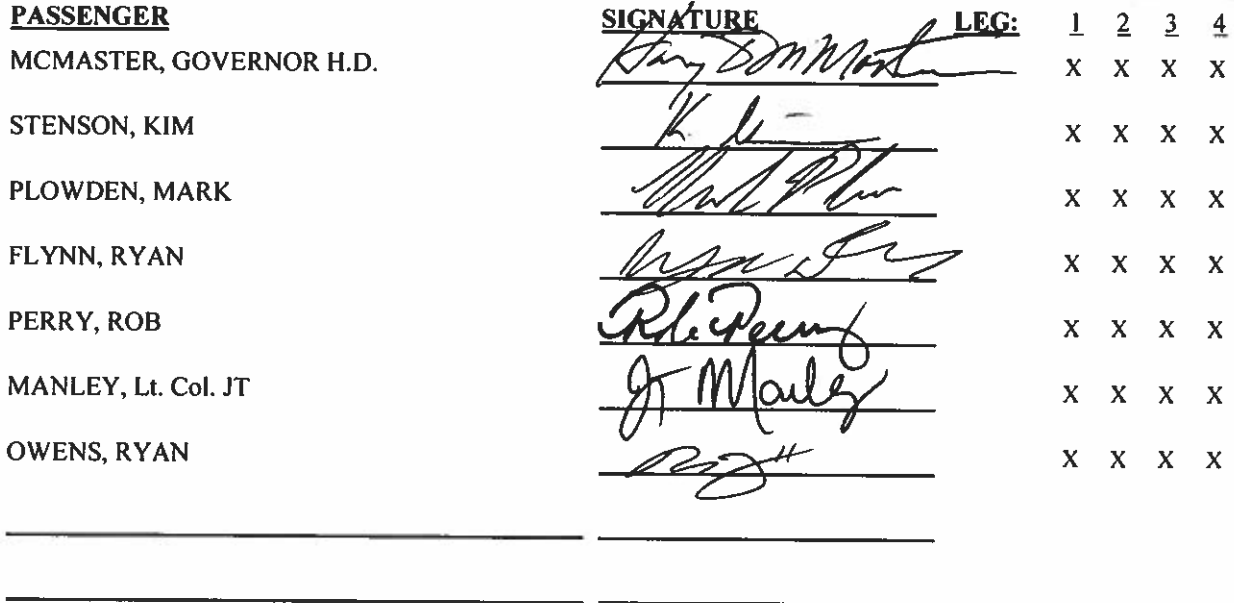 PASSENGER SIGNATURE LEG: 1 2 3 4
MCMASTER, GOVERNOR H.D. X X X X
STENSON, KIM X X X X
PLOWDEN, MARK X X X X
FLYNN, RYAN X X X X
PERRY, ROB Rob Perry X X X X
MANLEY, Lt. Col. JT JT Manley X X X X
OWENS, RYAN X X X X